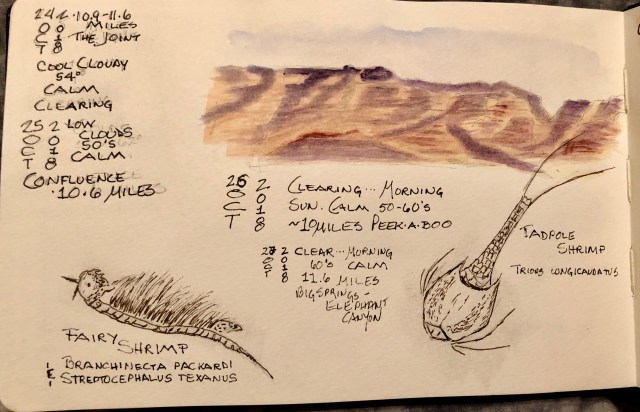 24 2 · 10.9-11.6
O 0 MILES
C 1 THE JOINT
T 8
COOL CLOUDY
54°
CALM
CLEARING
25 2 LOW
O 0 CLOUDS
C 1 50'S
T 8 CALM
CONFLUENCE
·10.6 MILES
26 2 CLEARING... MORNING
O 0 SUN. CALM 50-60'S
C 1 ~10 MILES PEEK·A·BOO
T 8
27 2 CLEAR... MORNING
O 0 60'S CALM
C 1 11.6 MILES
T 8 BIG SPRINGS -
ELEPHANT
CANYON
TADPOLE
SHRIMP
TRIOPS LONGICAUDATUS
FAIRY
SHRIMP
BRANCHINECTA PACKARDI
& STREPTOCEPHALUS TEXANUS